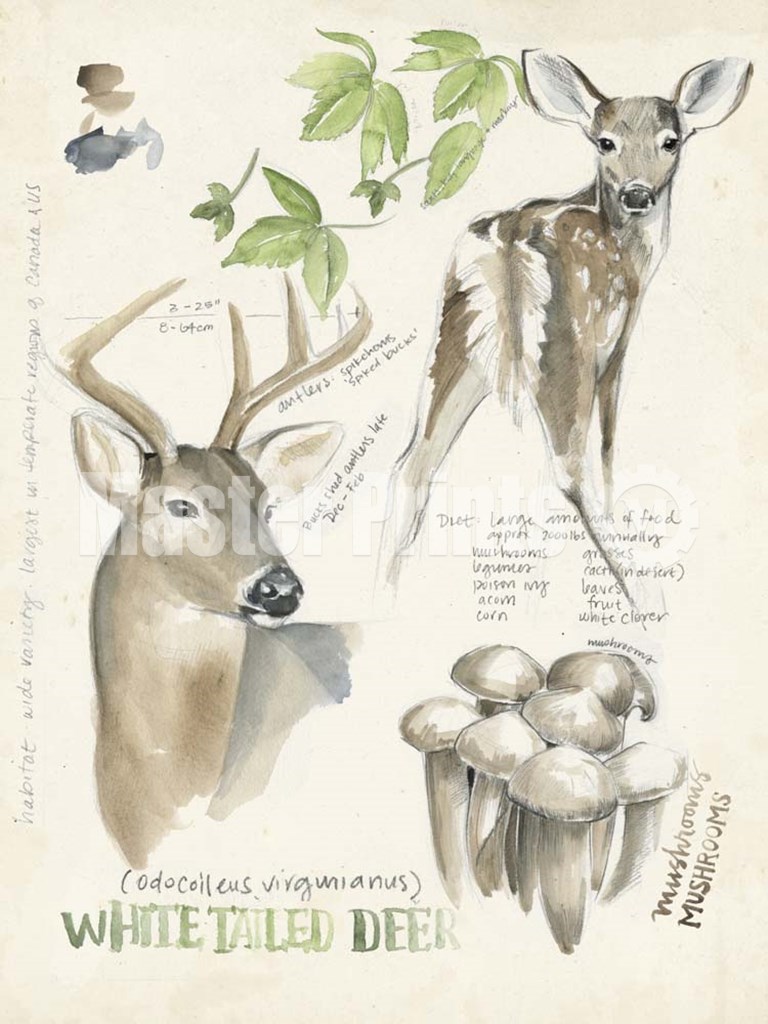 3 - 25"
8 - 64cm
antlers: spikehorns
'spiked bucks'
Bucks shed antlers late
Dec - Feb
habitat wide variery. largest in temperate regions of Canada & US
Master Prints
Diet: large amounts of food
approx 2000 lbs annually
mushrooms grasses
legumes cacti (in desert)
poison ivy leaves
acorn fruit
corn white clover
mushrooms
mushrooms
MUSHROOMS
(odocoileus virginianus)
WHITE TAILED DEER